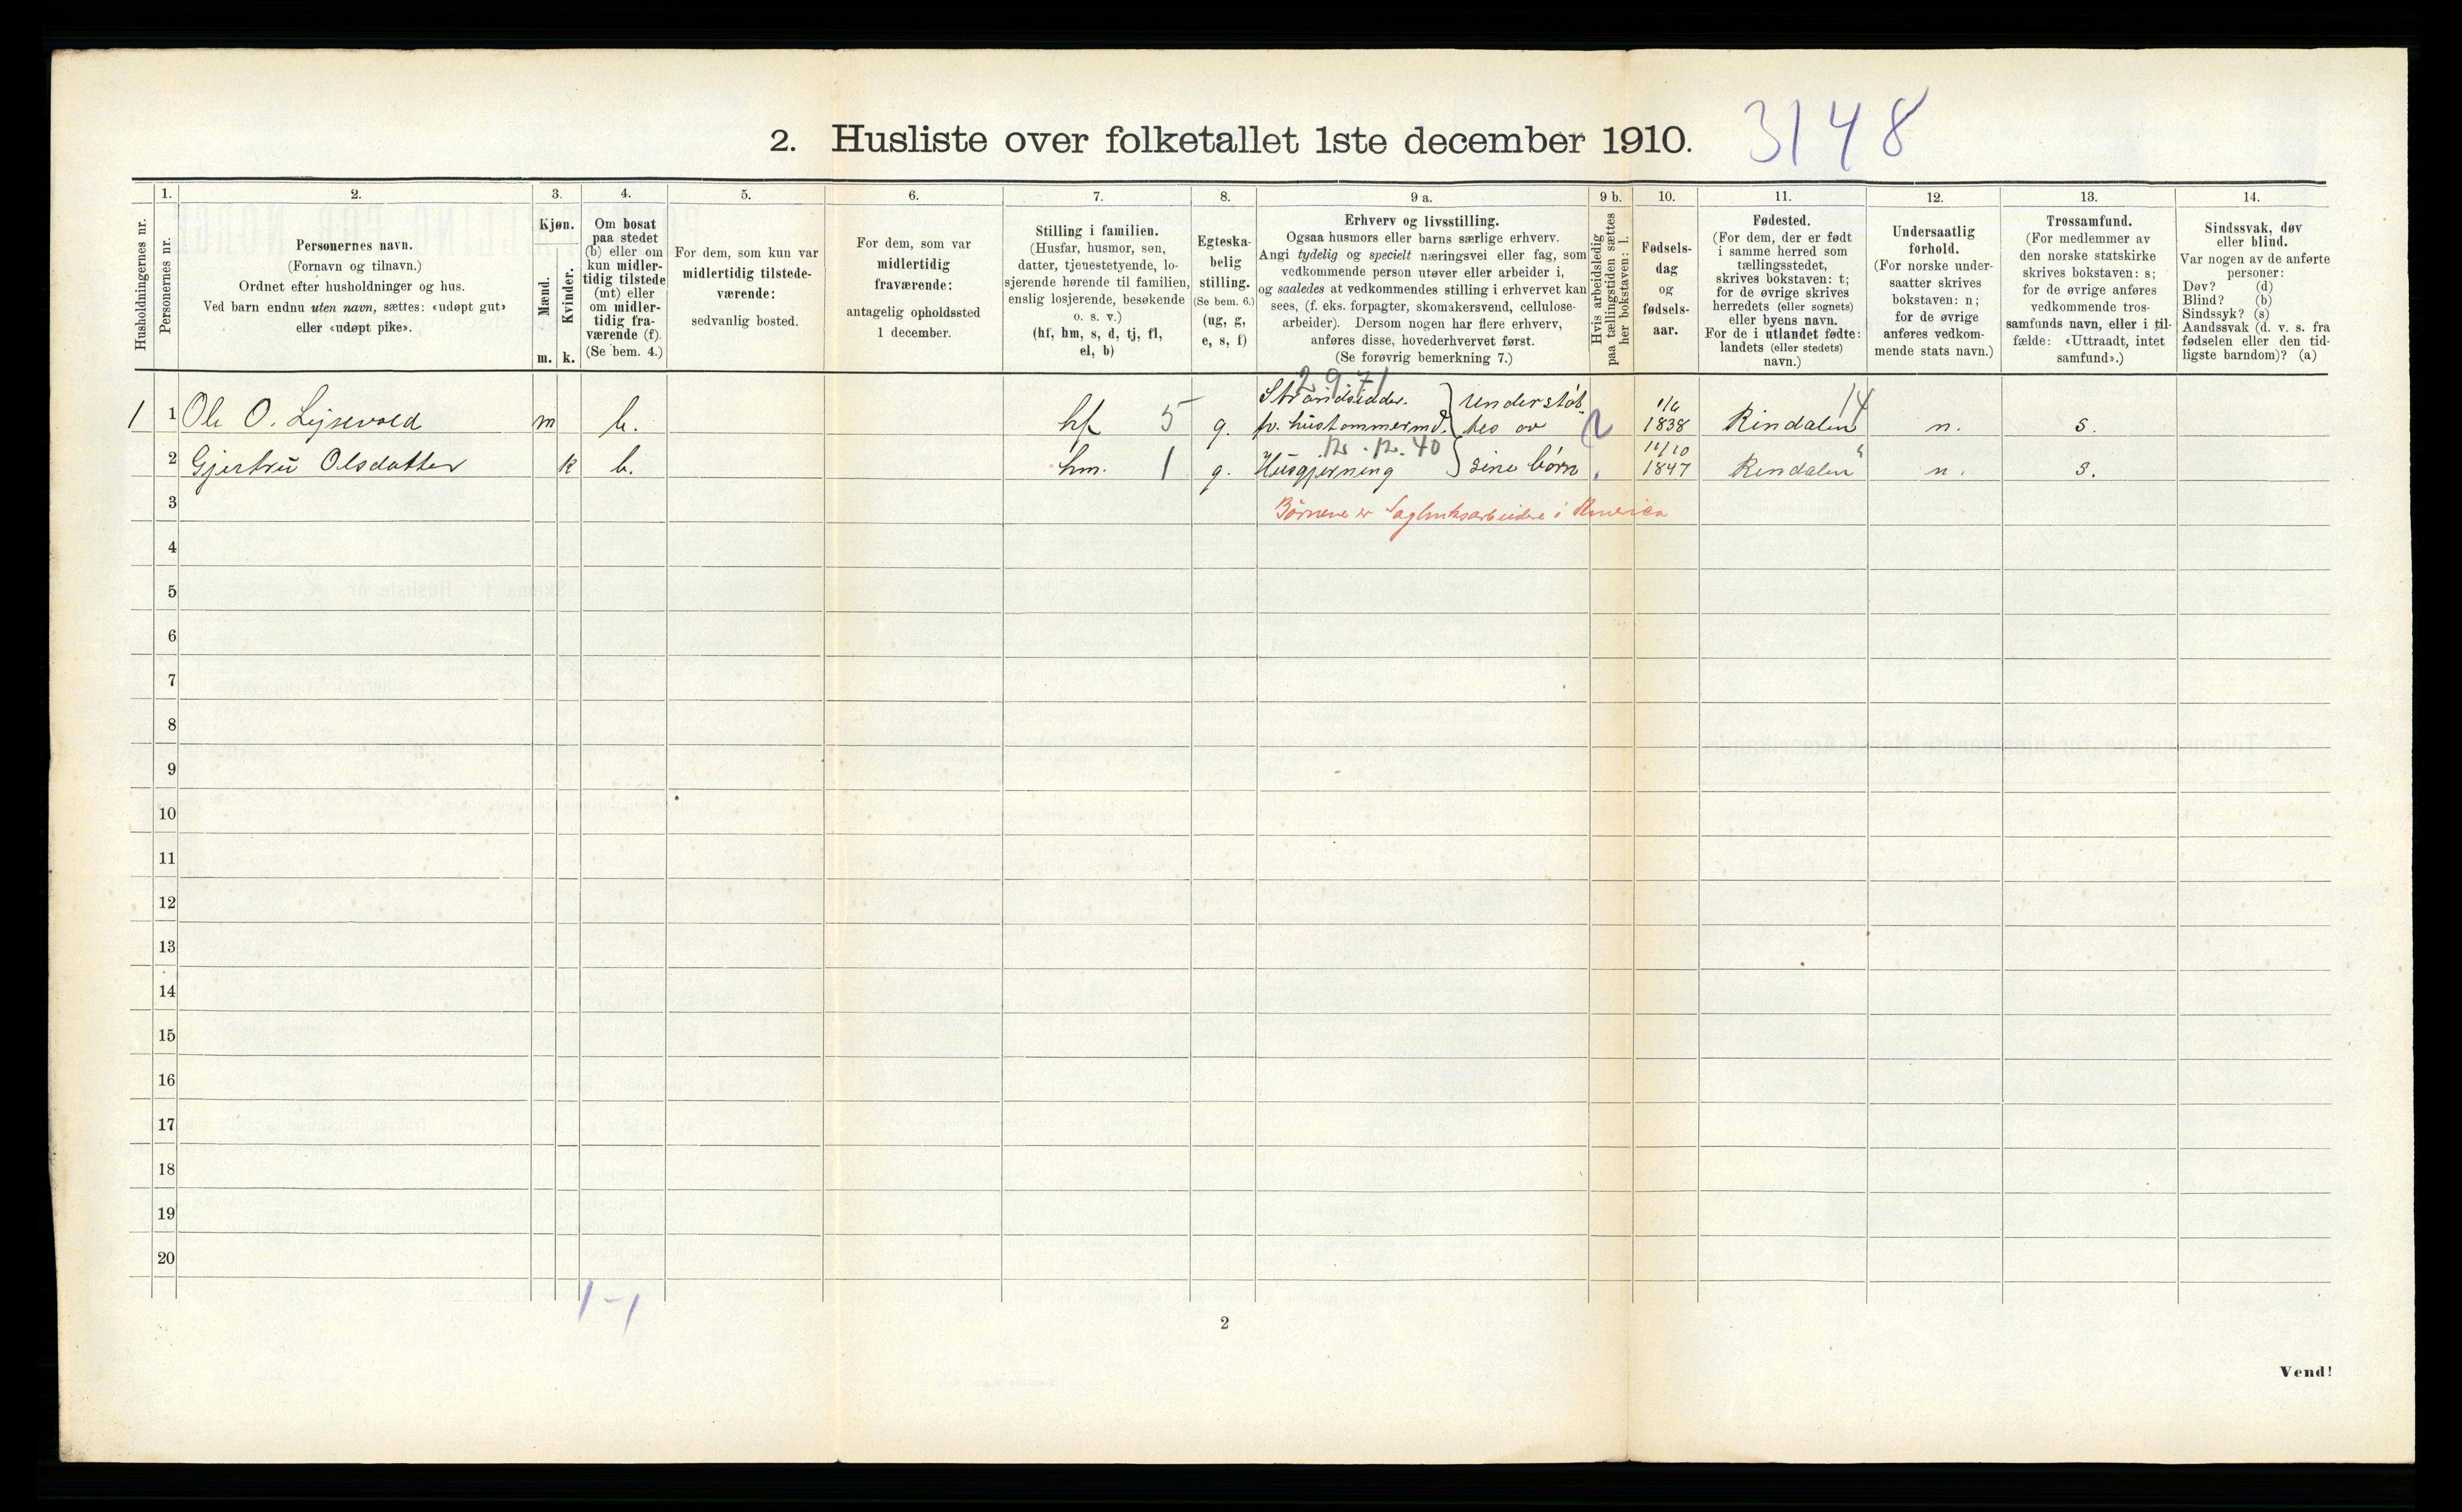 2. Husliste over folketallet 1ste december 1910. 3148
1. 2. 3. 4. 5. 6. 7. 8. 9 a. 9 b. 10. 11. 12. 13. 14.
Husholdningernes nr.
Personernes nr.
Personernes navn.
(Fornavn og tilnavn.)
Ordnet efter husholdninger og hus.
Ved barn endnu uten navn, sættes: «udøpt gut»
eller «udøpt pike».
Kjøn.
Mænd.
Kvinder.
m. k.
Om bosat
paa stedet
(b) eller om
kun midler-
tidig tilstede
(mt) eller
om midler-
tidig fra-
værende (f).
(Se bem. 4.)
For dem, som kun var
midlertidig tilstede-
værende:
sedvanlig bosted.
For dem, som var
midlertidig
fraværende:
antagelig opholdssted
1 december.
Stilling i familien.
(Husfar, husmor, søn,
datter, tjenestetyende, lo-
sjerende hørende til familien,
enslig losjerende, besøkende
o. s. v.)
(hf, hm, s, d, tj, fl,
el, b)
Egteska-
belig
stilling.
(Se bem. 6.)
(ug, g,
e, s, f)
Erhverv og livsstilling.
Ogsaa husmors eller barns særlige erhverv.
Angi tydelig og specielt næringsvei eller fag, som
vedkommende person utøver eller arbeider i,
og saaledes at vedkommendes stilling i erhvervet kan
sees, (f. eks. forpagter, skomakersvend, cellulose-
arbeider). Dersom nogen har flere erhverv,
anføres disse, hovederhvervet først.
(Se forøvrig bemerkning 7.)
Hvis arbeidsledig
paa tællingstiden sættes
her bokstaven: l.
Fødsels-
dag
og
fødsels-
aar.
Fødested.
(For dem, der er født
i samme herred som
tællingsstedet,
skrives bokstaven: t;
for de øvrige skrives
herredets (eller sognets)
eller byens navn.
For de i utlandet fødte:
landets (eller stedets)
navn.)
Undersaatlig
forhold.
(For norske under-
saatter skrives
bokstaven: n;
for de øvrige
anføres vedkom-
mende stats navn.)
Trossamfund.
(For medlemmer av
den norske statskirke
skrives bokstaven: s;
for de øvrige anføres
vedkommende tros-
samfunds navn, eller i til-
fælde: «Uttraadt, intet
samfund».)
Sindssvak, døv
eller blind.
Var nogen av de anførte
personer:
Døv? (d)
Blind? (b)
Sindssyk? (s)
Aandssvak (d. v. s. fra
fødselen eller den tid-
ligste barndom)? (a)
2.9.71
Strandsidder. } Understøt 1/6 14
1 1 Ole O. m b. hf 5 g. fv. hustømmermd. tes av 2 1838 Rindalen n. s.
12.12.40 11/10
2 Gjertru Olsdatter k b. hm. 1 g. Husgjerning } sine børn 1847 Rindalen n. s.
3 Børnene er Sagbruksarbeidere i America
4
5
6
7
8
9
10
11
12
13
14
15
16
17
18
19
20
1-1
2
Vend!